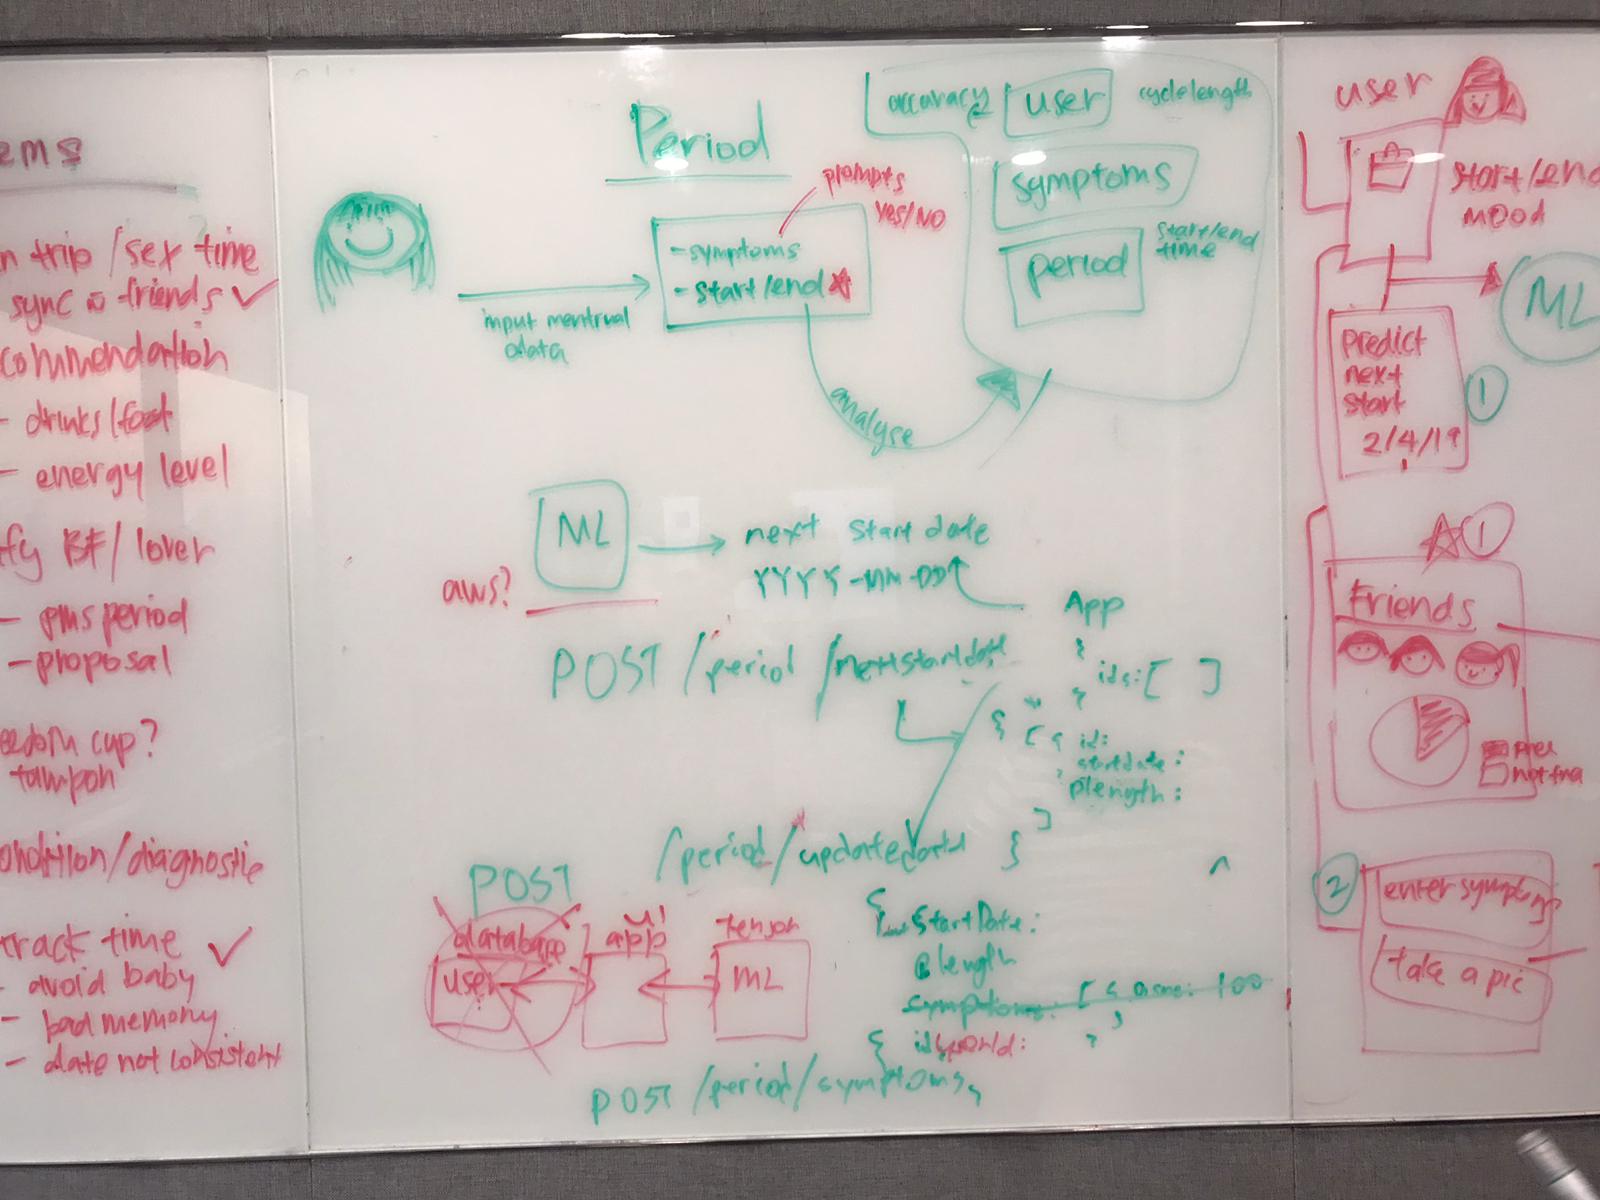 ems
n trip / sex time
sync w friends ✓
commendation
- drinks/food
- energy level
fy BF/ lover
- pms period
- proposal
eedom cup?
tampon
ondition/diagnostic
track time ✓
- avoid baby
- bad memory
- date not consistent
Period
prompts
Yes/NO
- symptoms
- start/end
input mentrual
data
analyse
accuracy
user
cyclelength
symptoms
period
start/end
time
ML
aws?
next start date
YYYY-MM-DD
App
{
ids: [ ]
}
POST /period /nextstartdate
{ [ { id:
startdate:
plength:
]
}
POST /period/updatedata
database
user
app
tensor
ML
{
StartDate:
length
symptoms: 100
{
POST /period/symptoms
user
start/end
mood
ML
predict
next
start
2/4/19
1
1
Friends
2
enter symptoms
take a pic